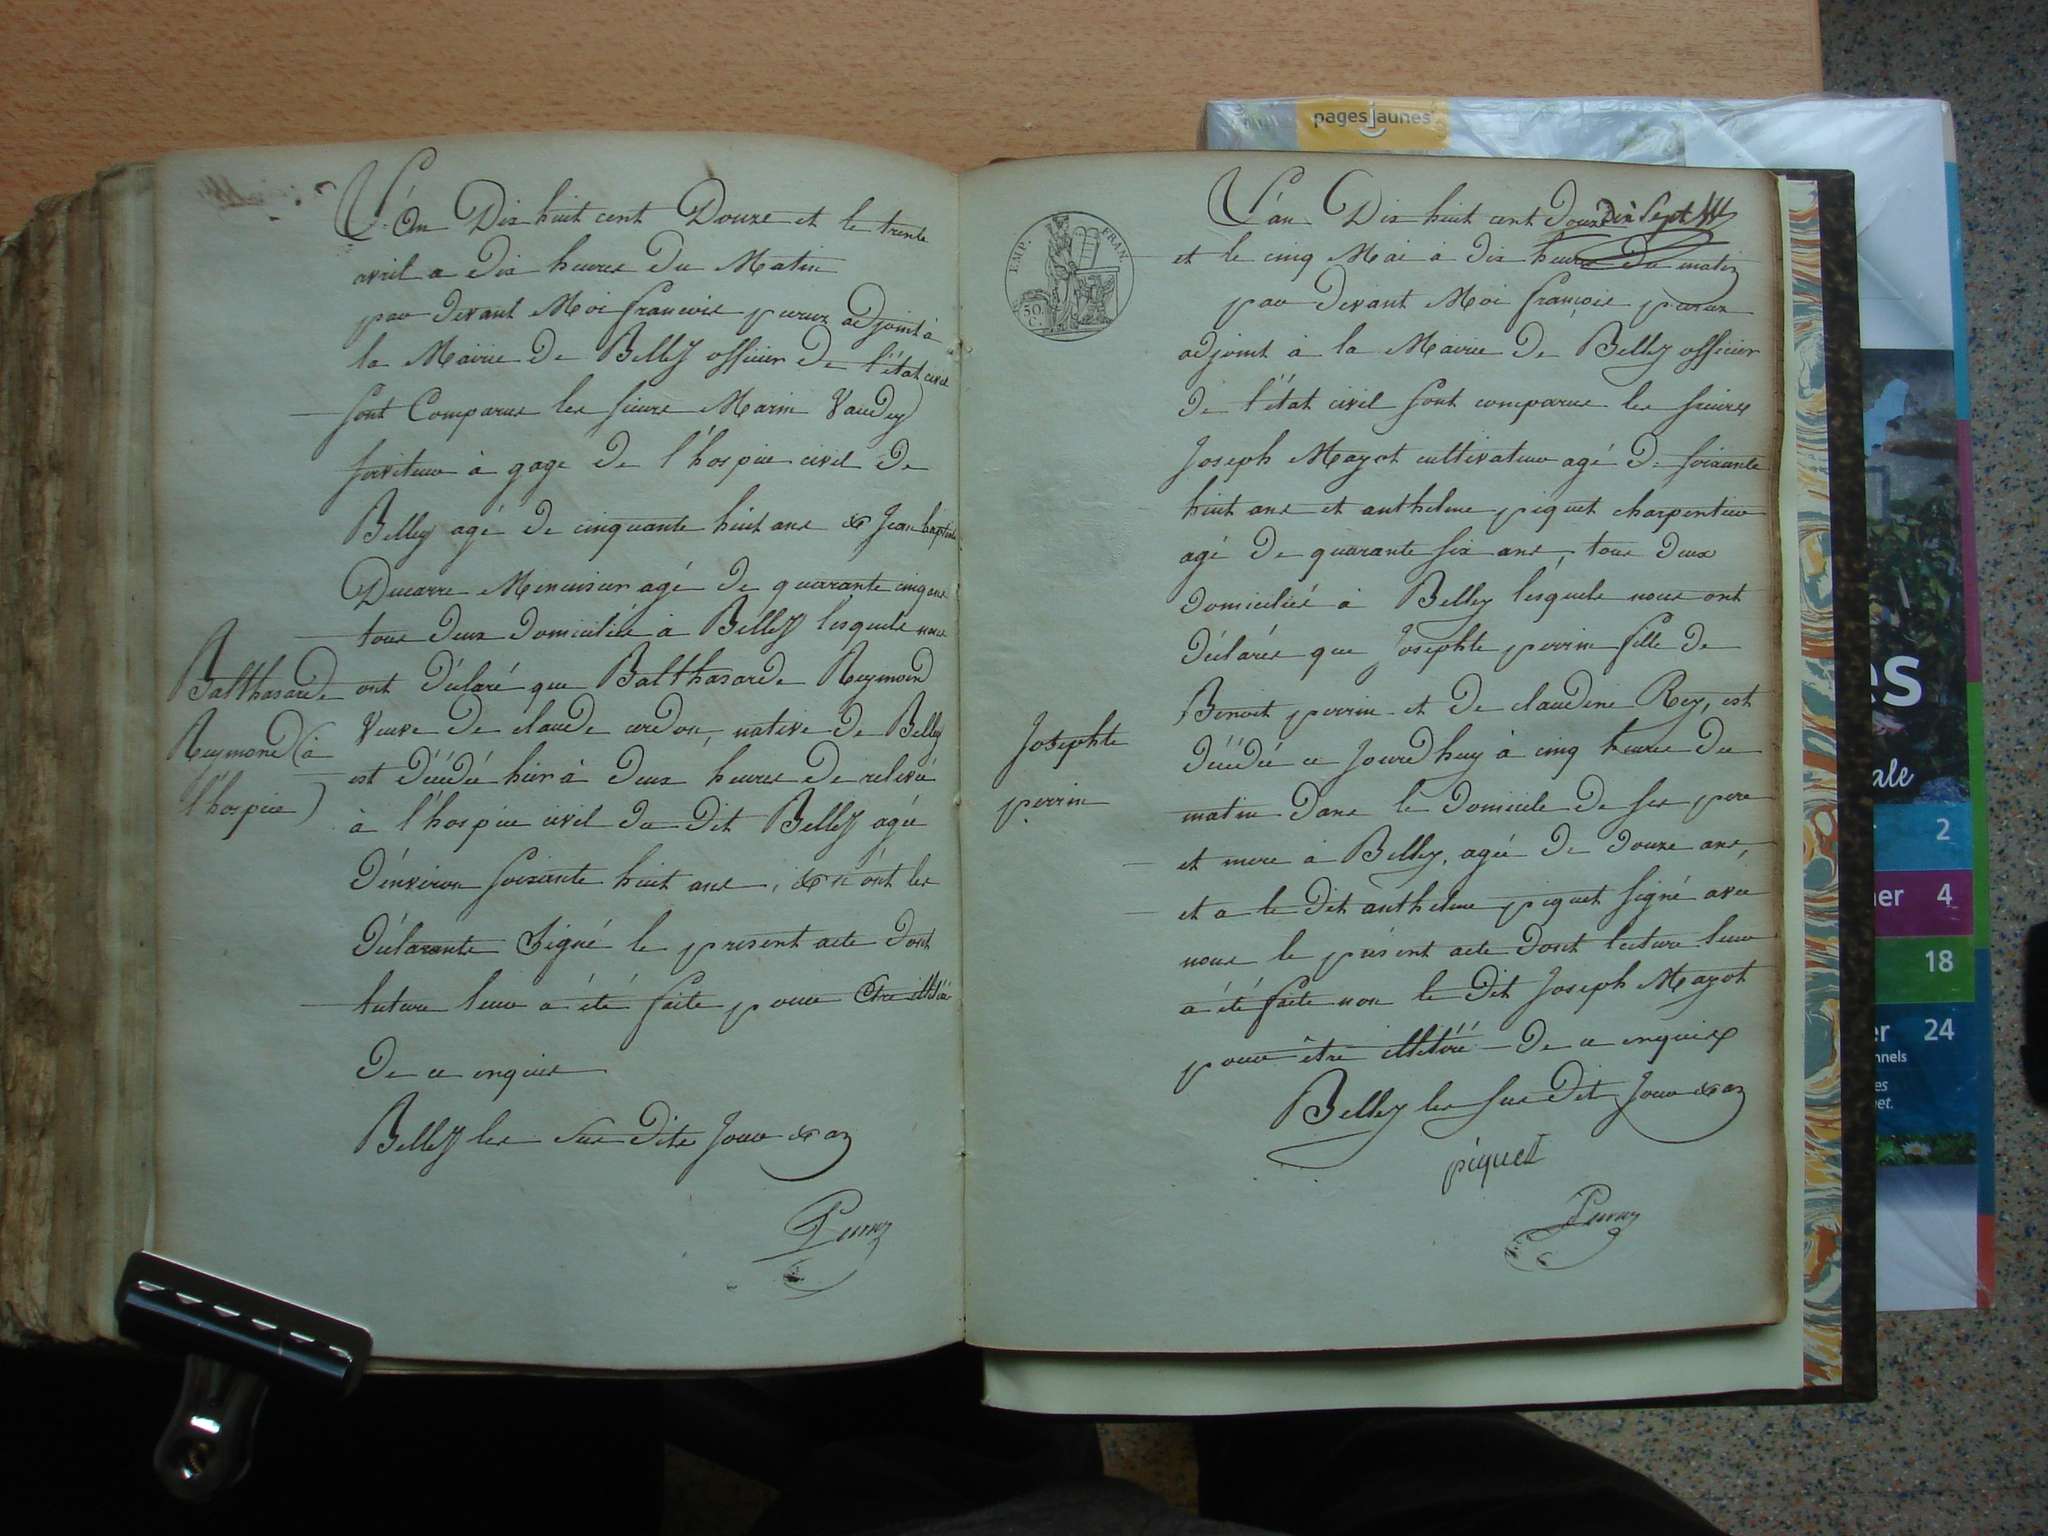 L'an Dix huit cent Douze et le trente
avril a dix heures du Matin
par devant Moi francois peruz adjoint à
la Mairie de Belley officier de l'état civil
sont Comparus les sieurs Marin Vaudey
serviteur à gage de l'hospice civil de
Belley agé de cinquante huit ans & Jean baptiste
Ducarre Menuisier agé de quarante cinq ans
tous deux domiciliés à Belley lesquels nous
ont déclaré que Balthasarde Reymond
Veuve de claude cerdon, native de Belley
est décédé hier à deux heures de relevé
à l'hospice civil du dit Belley agée
d'environ soixante huit ans, & n'ont les
déclarants signé le present acte dont
lecture leur a été faite pour être illitéré
de ce enquis
Belley les sus dits jour & an
Peruz
Balthasarde
Reymond (à
l'hospice)
EMP. FRAN.
50 C.
L'an Dix huit cent douze Dix Sept
et le cinq Mai à dix heures du matin
par devant Moi françois peruz
adjoint à la Mairie de Belley officier
de l'état civil sont comparus les sieurs
Joseph Mayot cultivateur agé de soixante
huit ans et anthelme piquet charpentier
agé de quarante six ans, tous deux
domiciliés à Belley lesquels nous ont
déclarés que Josephte perrin fille de
Benoit perrin et de claudine Rey, est
décédée ce jourdhuy à cinq heures du
matin dans le domicile de ses pere
et mere à Belley, agée de douze ans,
et a le dit anthelme piquet signé avec
nous le présent acte dont lecture leur
a été faite non le dit Joseph Mayot
pour être illitéré de ce enquis
Belley les sus dit jour & an
piquet
Peruz
Josephte
perrin
pages Jaunes
es
ale
2
er 4
18
er 24
nnels
es
net.